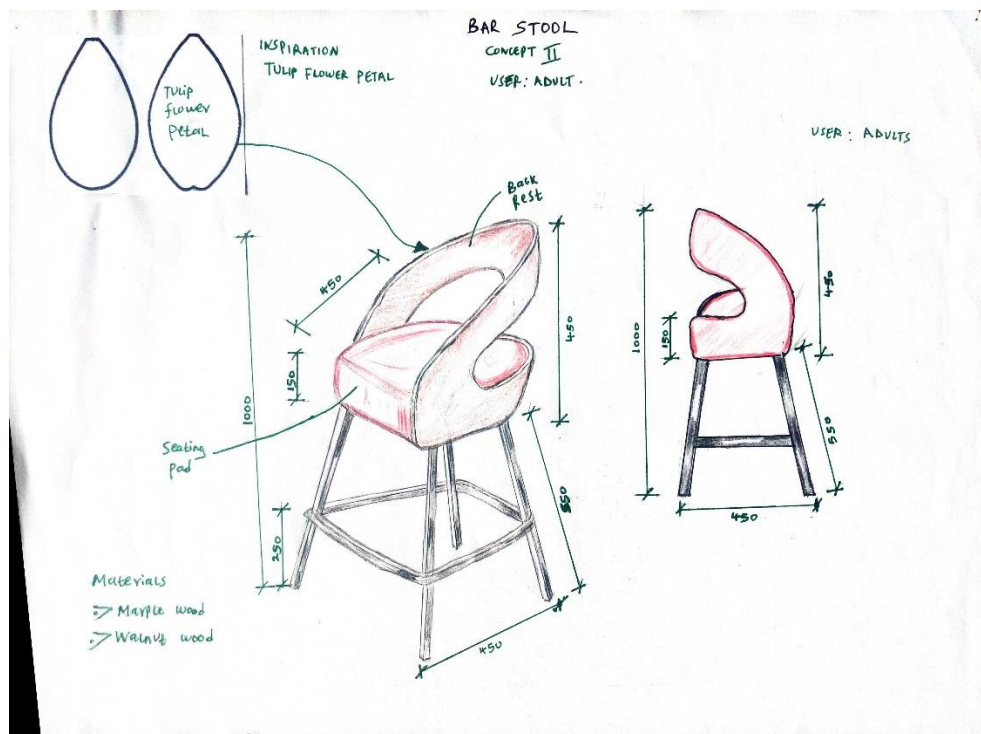 BAR STOOL
CONCEPT II
USER: ADULT.
INSPIRATION
TULIP FLOWER PETAL
Tulip
flower
Petal
USER: ADULTS
Back
Rest
450
450
150
1000
Seating
pad
250
550
450
1000
150
450
550
450
Materials
Marple wood
Walnut wood